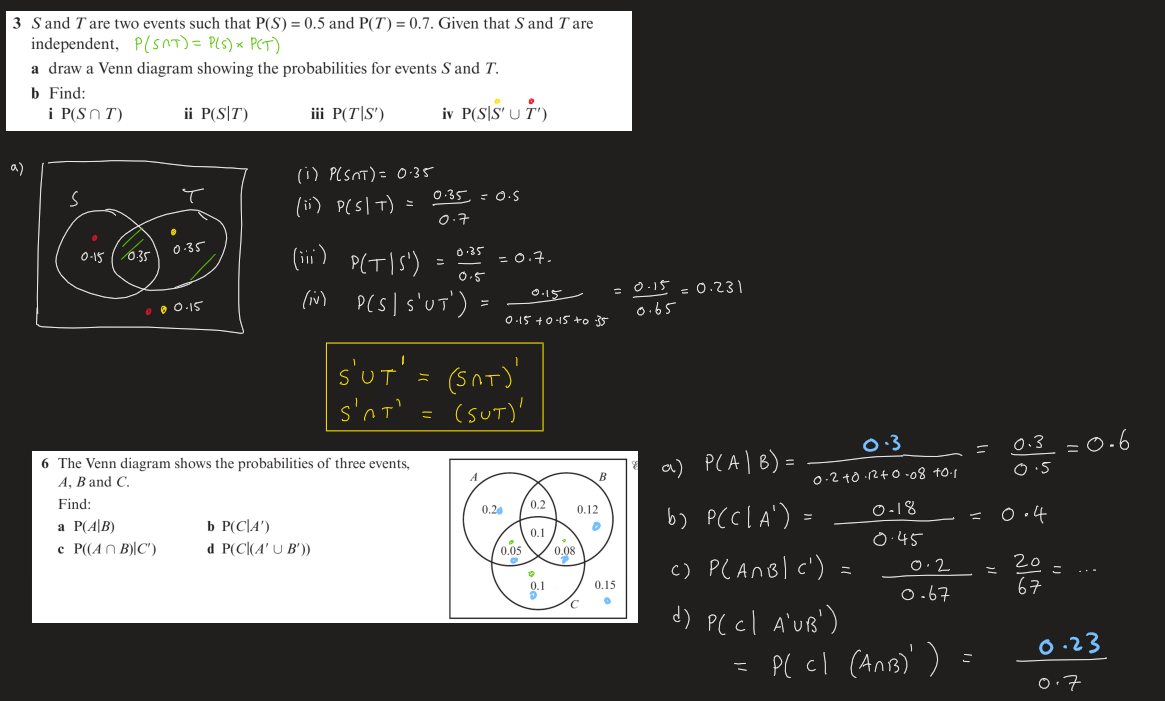 3 S and T are two events such that P(S) = 0.5 and P(T) = 0.7. Given that S and T are
independent, P(S∩T) = P(S) × P(T)
a draw a Venn diagram showing the probabilities for events S and T.
b Find:
i P(S ∩ T) ii P(S|T) iii P(T|S′) iv P(S|S′ ∪ T′)
a)
S T
0.15 0.35 0.35
0.15
(i) P(S∩T) = 0.35
(ii) P(S|T) = 0.35/0.7 = 0.5
(iii) P(T|S') = 0.35/0.5 = 0.7.
(iv) P(S|S'∪T') = 0.15/0.15+0.15+0.35 = 0.15/0.65 = 0.231
S'∪T' = (S∩T)'
S'∩T' = (S∪T)'
6 The Venn diagram shows the probabilities of three events,
A, B and C.
Find:
a P(A|B) b P(C|A′)
c P((A ∩ B)|C′) d P(C|(A′ ∪ B′))
A B
0.2 0.2 0.12
0.1
0.05 0.08
0.1 0.15
C
a) P(A|B) = 0.3/0.2+0.12+0.08+0.1 = 0.3/0.5 = 0.6
b) P(C|A') = 0.18/0.45 = 0.4
c) P(A∩B|C') = 0.2/0.67 = 20/67 = ...
d) P(C|A'∪B')
= P(C|(A∩B)') = 0.23/0.7